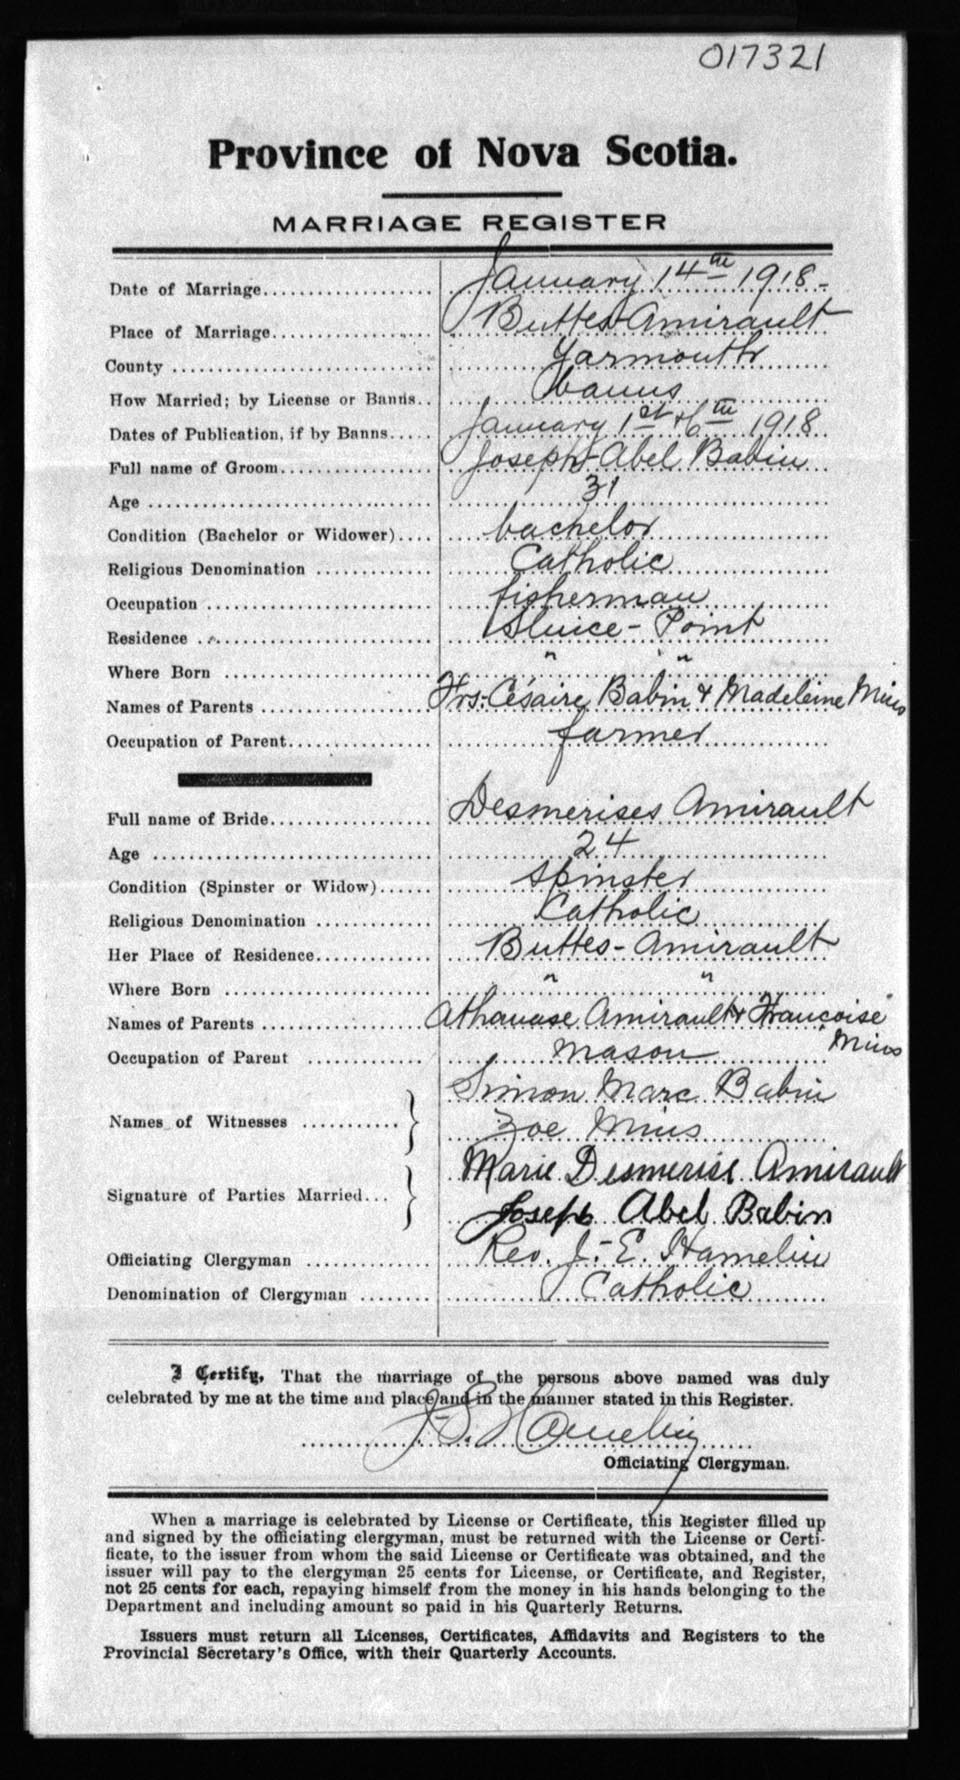 017321
Province of Nova Scotia.
MARRIAGE REGISTER
Date of Marriage.................... January 14th 1918-
Place of Marriage................... Buttes-Amirault
County ............................. Yarmouth
How Married; by License or Banns.. banns
Dates of Publication, if by Banns..... January 1st & 6th 1918
Full name of Groom.................. Joseph-Abel Babin
Age ................................ 31
Condition (Bachelor or Widower).... bachelor
Religious Denomination ............. Catholic
Occupation ......................... fisherman
Residence .......................... Sluice-Point
Where Born ........................ " "
Names of Parents .................. Frs: Césaire Babin & Madeleine Mius
Occupation of Parent................ farmer
Full name of Bride.................. Desmerises Amirault
Age ................................ 24
Condition (Spinster or Widow)...... spinster
Religious Denomination ............. Catholic
Her Place of Residence.............. Buttes-Amirault
Where Born ........................ " "
Names of Parents .................. Athanase Amirault & Françoise Mius
Occupation of Parent .............. mason
Names of Witnesses ........... } Simon Marc Babin
Zoe Mius
Signature of Parties Married... } Marie Desmerise Amirault
Joseph Abel Babin
Officiating Clergyman .............. Rev. J.-E. Hamelin
Denomination of Clergyman ........ Catholic
I Certify, That the marriage of the persons above named was duly
celebrated by me at the time and place and in the manner stated in this Register.
J-E. Hamelin
Officiating Clergyman.
When a marriage is celebrated by License or Certificate, this Register filled up
and signed by the officiating clergyman, must be returned with the License or Certi-
ficate, to the issuer from whom the said License or Certificate was obtained, and the
issuer will pay to the clergyman 25 cents for License, or Certificate, and Register,
not 25 cents for each, repaying himself from the money in his hands belonging to the
Department and including amount so paid in his Quarterly Returns.
Issuers must return all Licenses, Certificates, Affidavits and Registers to the
Provincial Secretary's Office, with their Quarterly Accounts.